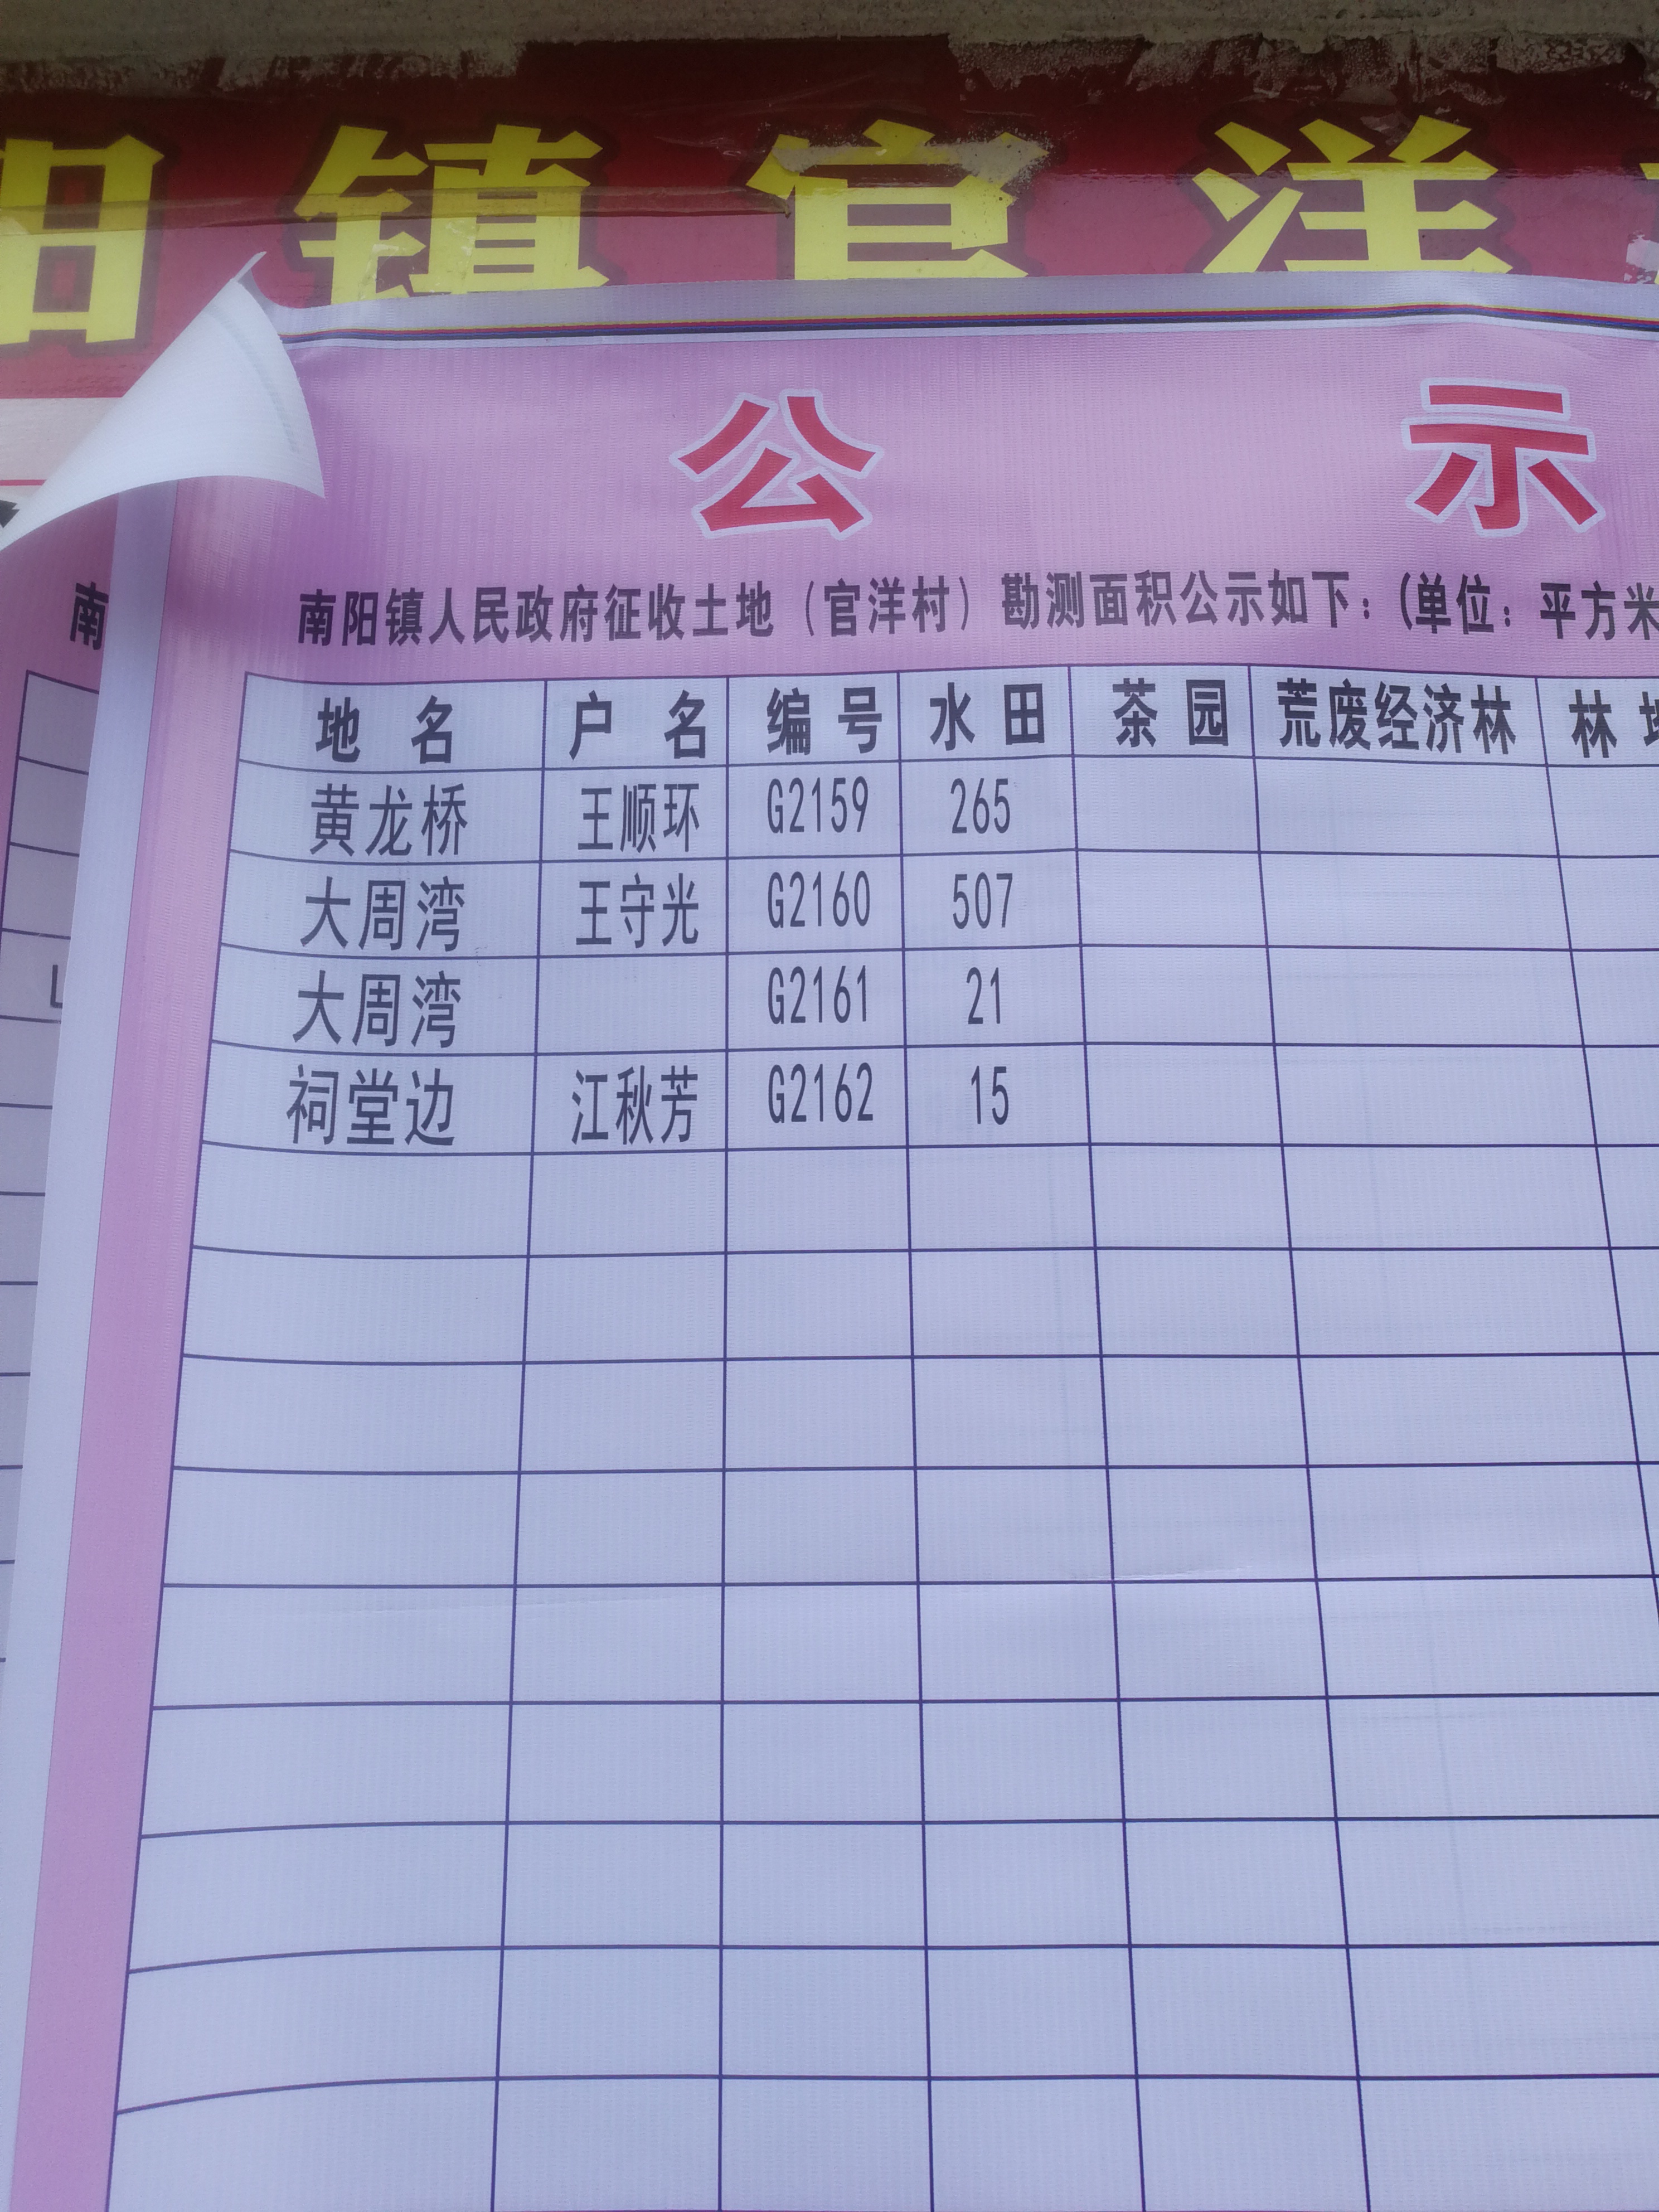 阳镇官洋
公示
南阳镇人民政府征收土地（官洋村）勘测面积公示如下：(单位：平方米
南
地名 户名 编号 水田 茶园 荒废经济林 林地
黄龙桥 王顺环 G2159 265
大周湾 王守光 G2160 507
大周湾 G2161 21
祠堂边 江秋芳 G2162 15